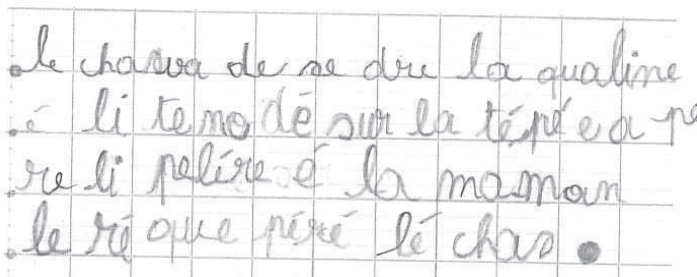 le chava de se dre la qualine
é li temo dé sur la tépé e a pe
re li pelire é la maman
le ré que péré lé chas.